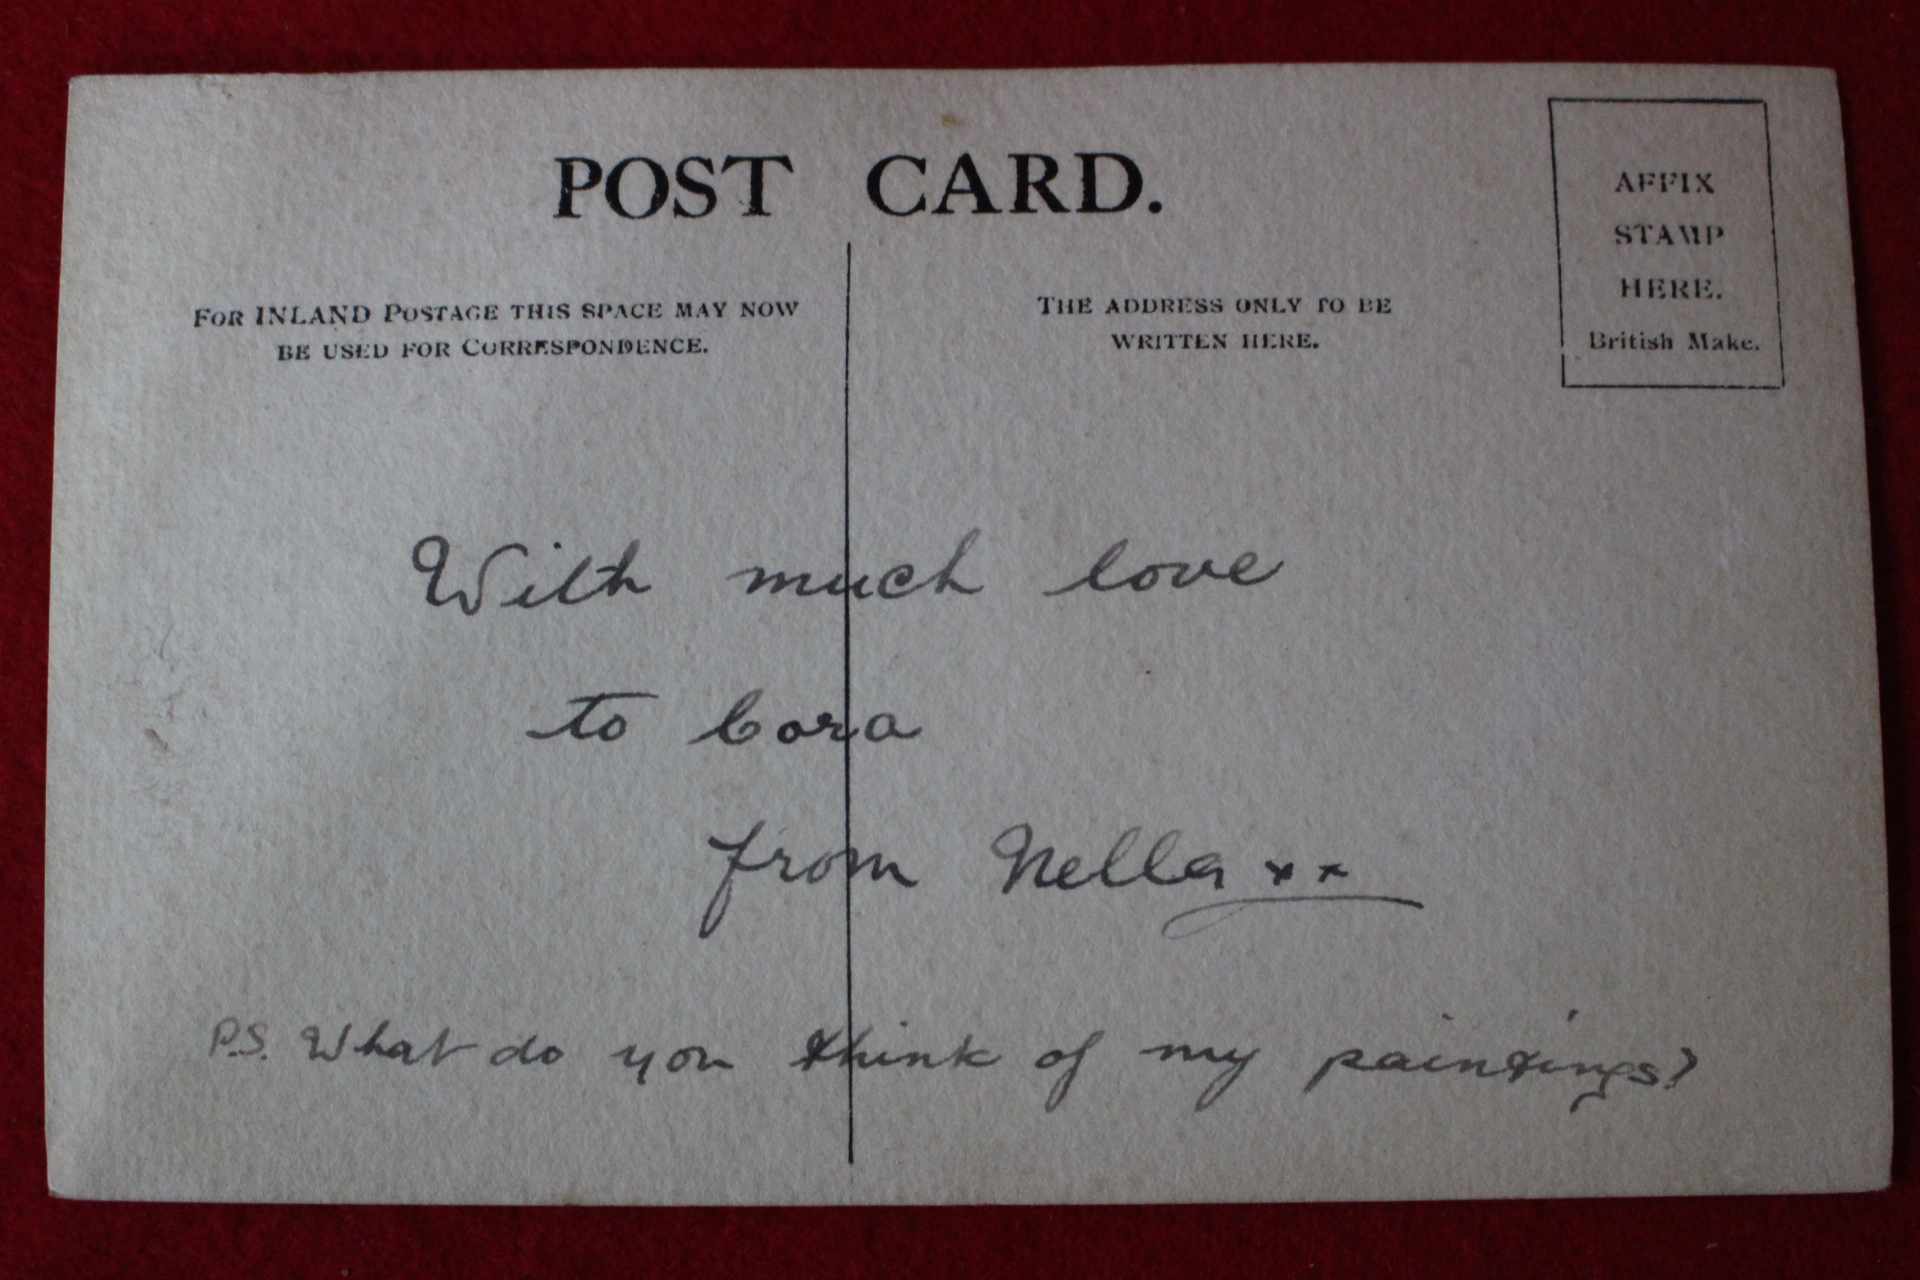 POST CARD.
FOR INLAND POSTAGE THIS SPACE MAY NOW
BE USED FOR CORRESPONDENCE.
THE ADDRESS ONLY TO BE
WRITTEN HERE.
AFFIX
STAMP
HERE.
British Make.
With much love
to Cora
from Nella xx
P.S. What do you think of my paintings?